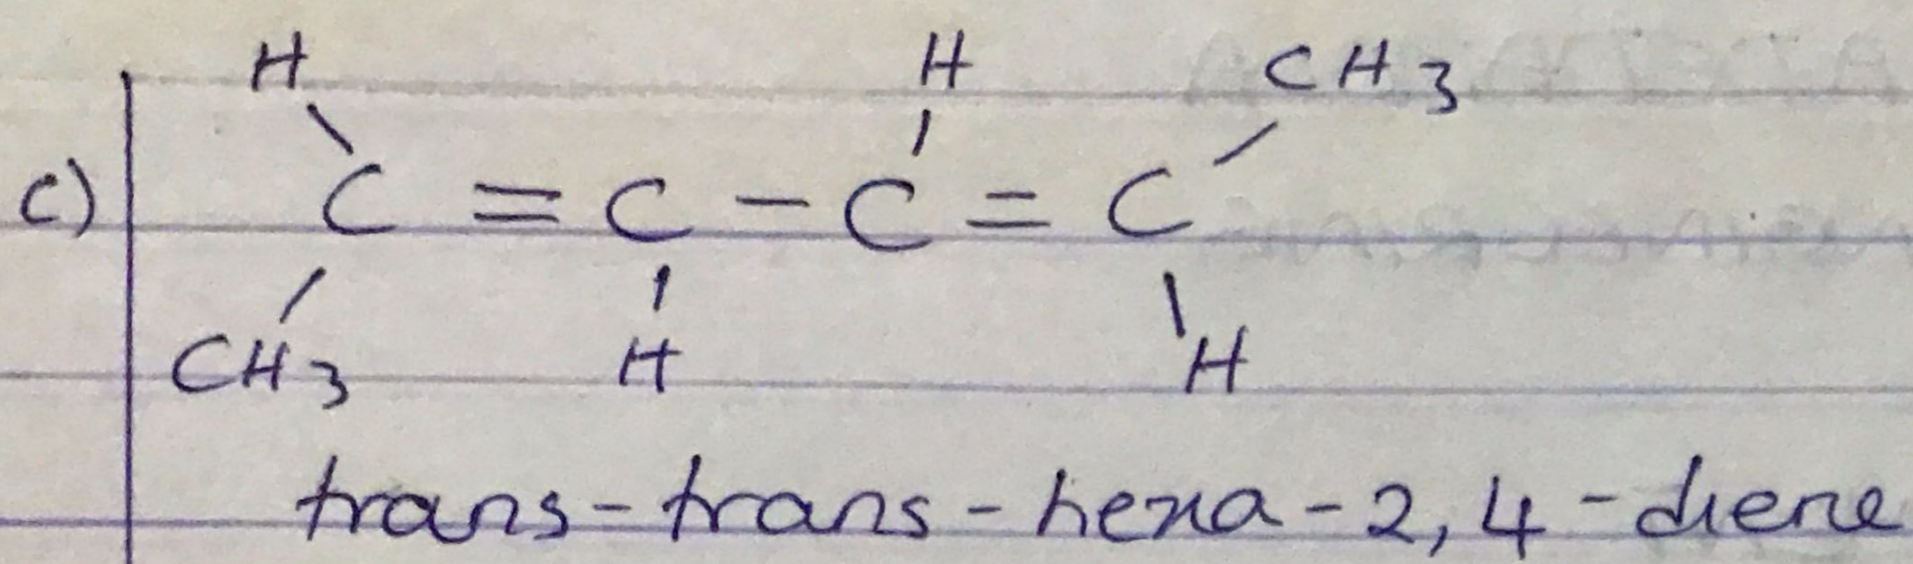 H H CH3
c) C = C - C = C
CH3 H H
trans-trans-hexa-2,4-diene